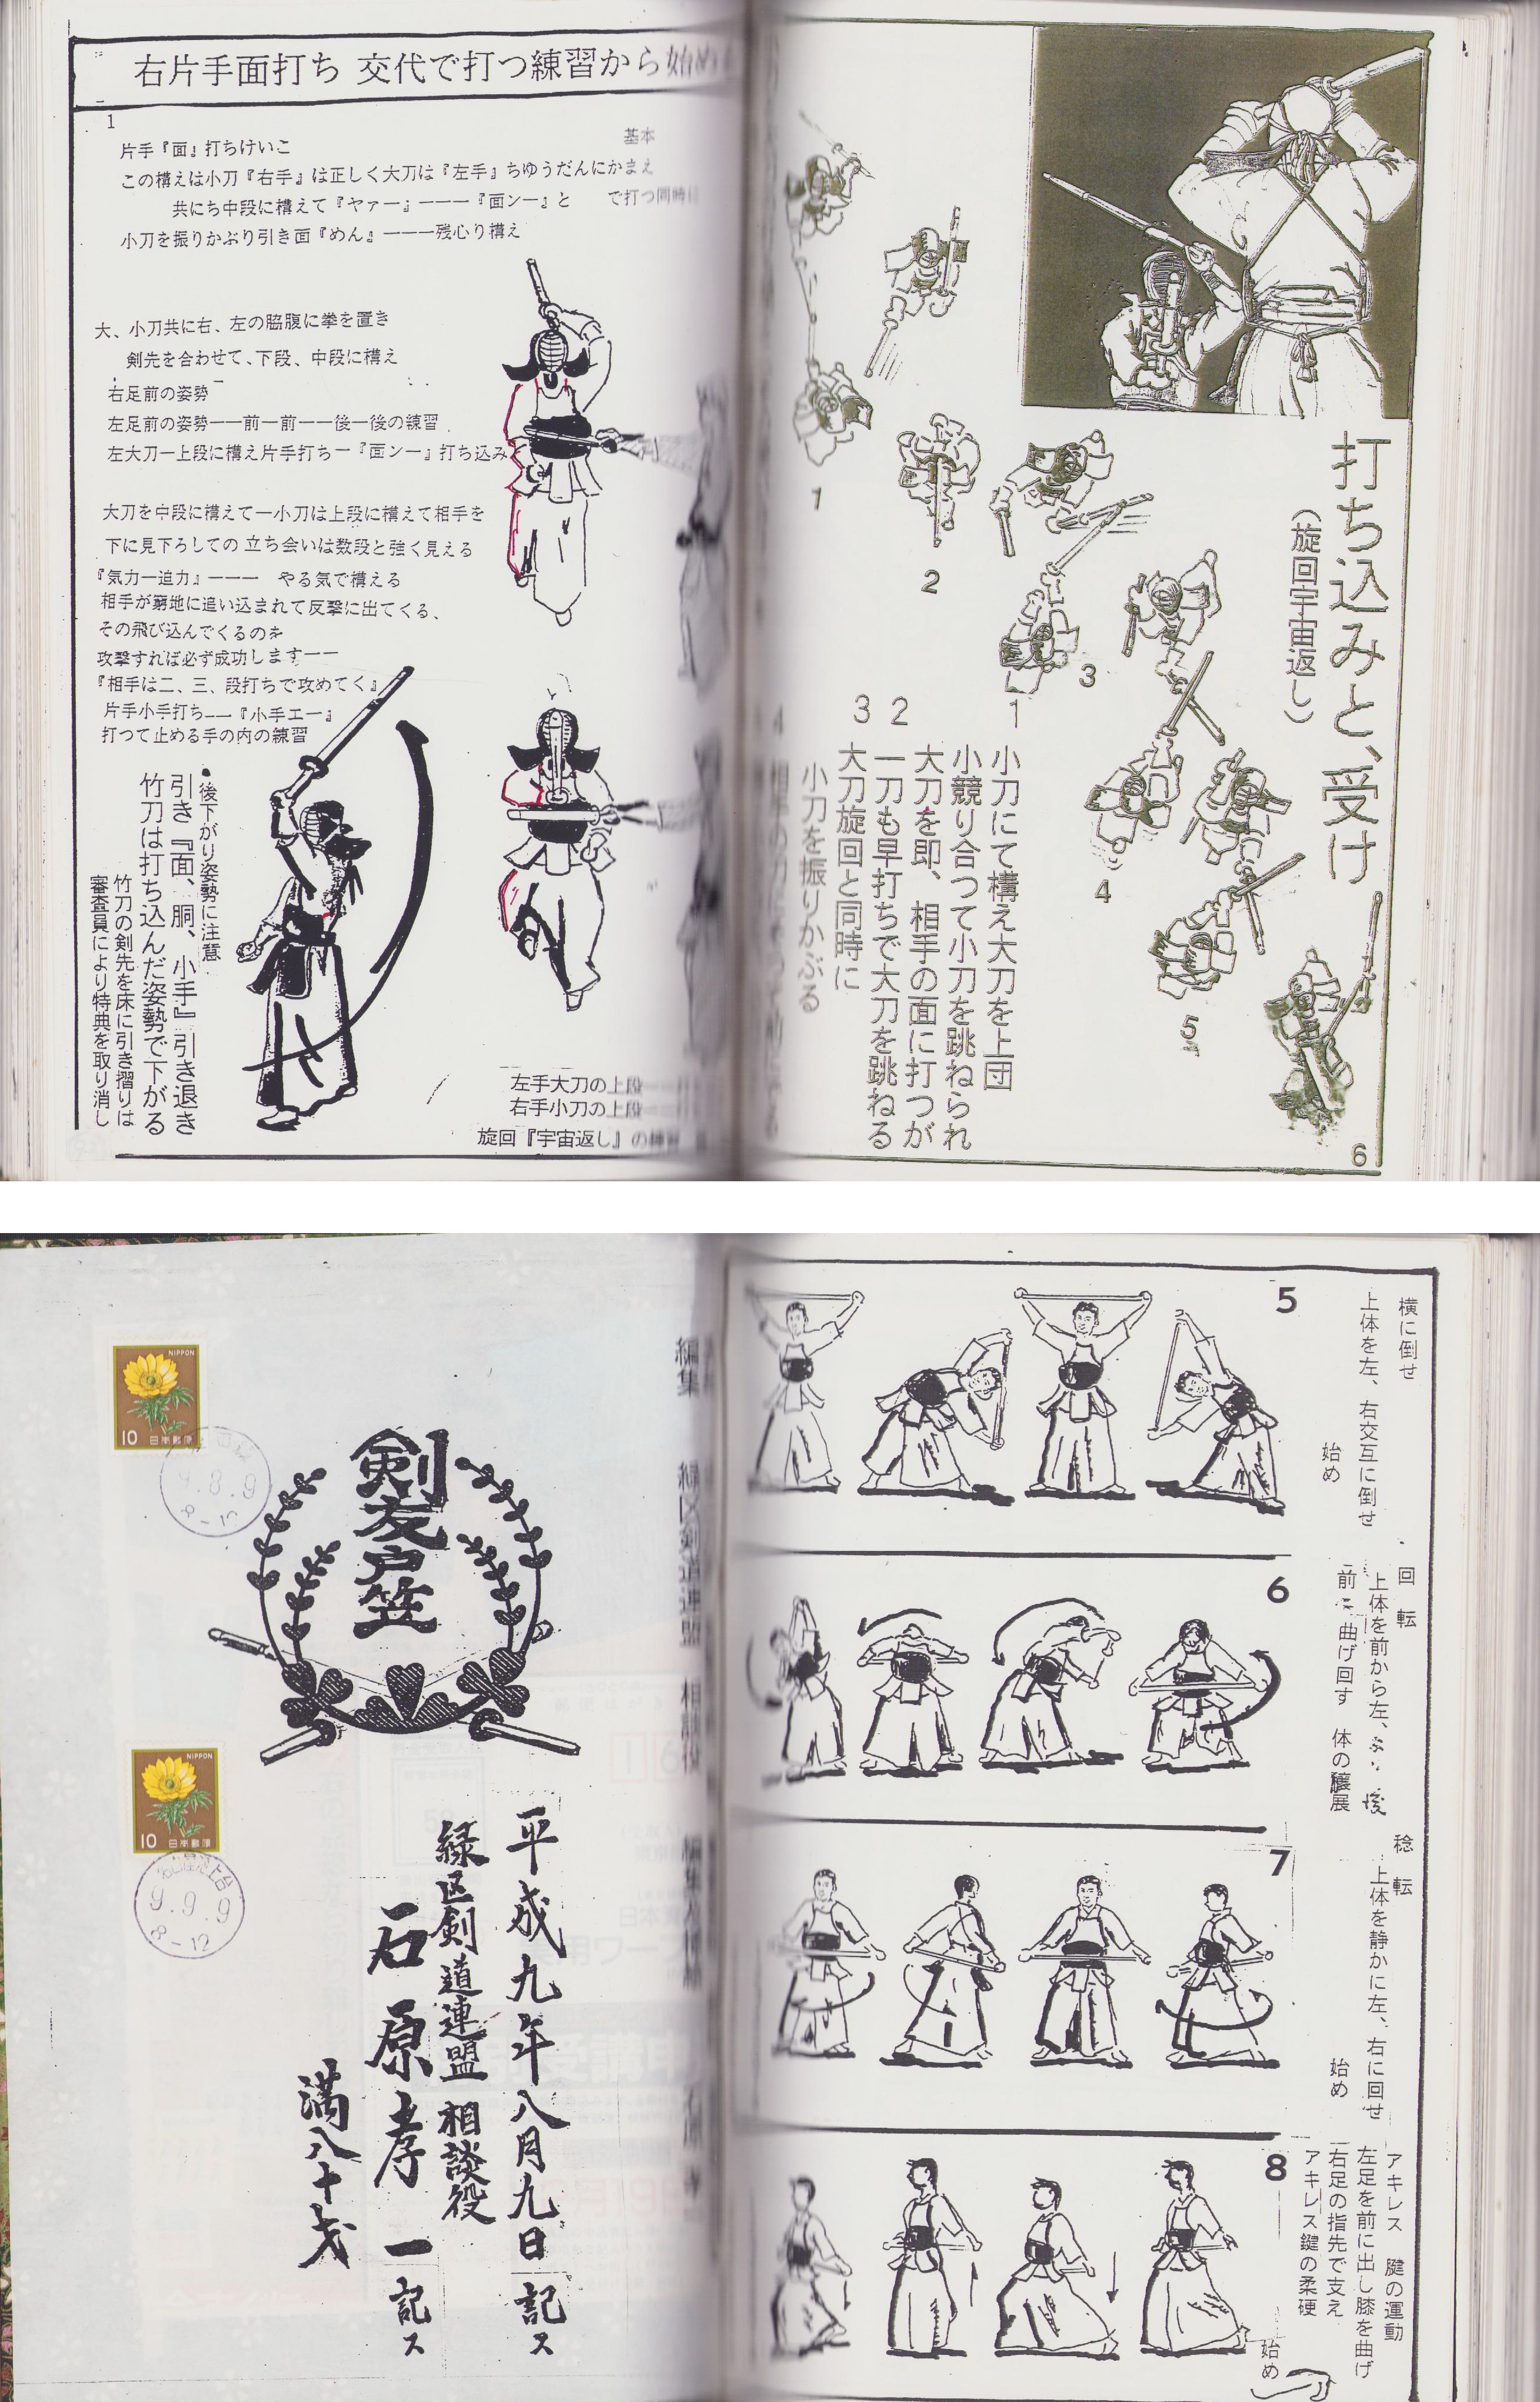 右片手面打ち 交代で打つ練習から始め
1
基本
片手『面』打ちけいこ
この構えは小刀『右手』は正しく大刀は『左手』ちゆうだんにかまえ
共にち中段に構えて『ヤァー』ーーー『面ンー』と で打つ同時に
小刀を振りかぶり引き面『めん』ーーー残心り構え
大、小刀共に右、左の脇腹に拳を置き
剣先を合わせて、下段、中段に構え
右足前の姿勢
左足前の姿勢ーー前ー前ーー後ー後の練習
左大刀ー上段に構え片手打ちー『面ンー』打ち込み
大刀を中段に構えてー小刀は上段に構えて相手を
下に見下ろしての 立ち会いは数段と強く見える
『気力ー迫力』ーーー やる気で構える
相手が窮地に追い込まれて反撃に出てくる、
その飛び込んでくるのを
攻撃すれば必ず成功しますーー
『相手は二、三、段打ちで攻めてく』
片手小手打ちーー『小手エー』
打つて止める手の内の練習
●後下がり姿勢に注意
引き『面、胴、小手』引き退き
竹刀は打ち込んだ姿勢で下がる
竹刀の剣先を床に引き摺りは
審査員により特典を取り消し
左手大刀の上段
右手小刀の上段
旋回『宇宙返し』の練習
打ち込みと、受け
(旋回宇宙返し)
1
2
3
4
5
6
1 小刀にて構え大刀を上団
小競り合つて小刀を跳ねられ
大刀を即、相手の面に打つが
2 一刀も早打ちで大刀を跳ねる
3 大刀旋回と同時に
小刀を振りかぶる
4
NIPPON
10 日本郵便
9.8.9
8-12
NIPPON
10 日本郵便
9.9.9
8-12
剣友戸笠
平成九年八月九日 記ス
緑区剣道連盟 相談役
石原孝一 記ス
満八十才
編集 緑区剣道連盟 相談役
5
横に倒せ
上体を左、右交互に倒せ
始め
6
回転
上体を前から左、
前 曲げ回す 体の
7
稔転
上体を静かに左、右に回せ
始め
8
アキレス 腱の運動
左足を前に出し膝を曲げ
右足の指先で支え
アキレス鍵の柔硬
始め